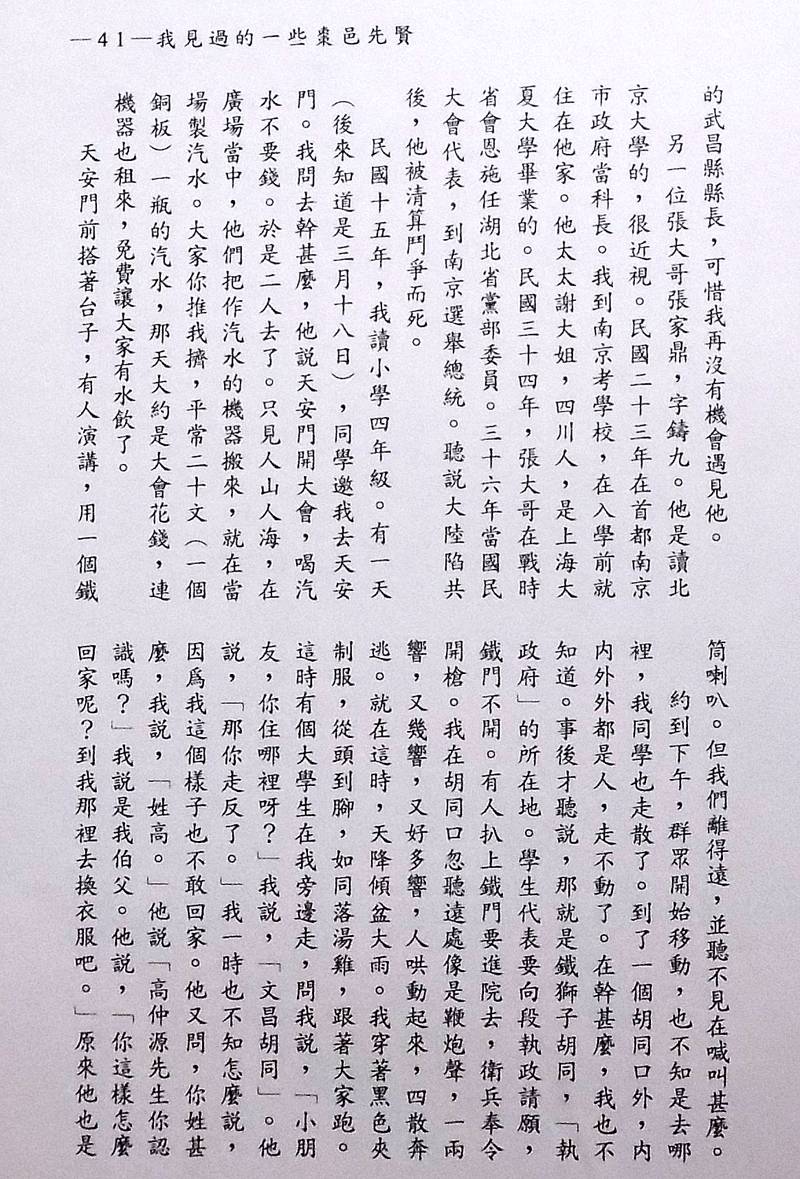 —41—我見過的一些棗邑先賢
的武昌縣縣長，可惜我再沒有機會遇見他。
另一位張大哥張家鼎，字鑄九。他是讀北
京大學的，很近視。民國二十三年在首都南京
市政府當科長。我到南京考學校，在入學前就
住在他家。他太太謝大姐，四川人，是上海大
夏大學畢業的。民國三十四年，張大哥在戰時
省會恩施任湖北省黨部委員。三十六年當國民
大會代表，到南京選舉總統。聽説大陸陷共
後，他被清算鬥爭而死。
民國十五年，我讀小學四年級。有一天
（後來知道是三月十八日），同學邀我去天安
門。我問去幹甚麼，他説天安門開大會，喝汽
水不要錢。於是二人去了。只見人山人海，在
廣場當中，他們把作汽水的機器搬來，就在當
場製汽水。大家你推我擠，平常二十文（一個
銅板）一瓶的汽水，那天大約是大會花錢，連
機器也租來，免費讓大家有水飲了。
天安門前搭著台子，有人演講，用一個鐵
筒喇叭。但我們離得遠，並聽不見在喊叫甚麼。
約到下午，群眾開始移動，也不知是去哪
裡，我同學也走散了。到了一個胡同口外，內
內外外都是人，走不動了。在幹甚麼，我也不
知道。事後才聽説，那就是鐵獅子胡同，「執
政府」的所在地。學生代表要向段執政請願，
鐵門不開。有人扒上鐵門要進院去，衛兵奉令
開槍。我在胡同口忽聽遠處像是鞭炮聲，一兩
響，又幾響，又好多響，人哄動起來，四散奔
逃。就在這時，天降傾盆大雨。我穿著黑色夾
制服，從頭到腳，如同落湯雞，跟著大家跑。
這時有個大學生在我旁邊走，問我説，「小朋
友，你住哪裡呀？」我説，「文昌胡同」。他
説，「那你走反了。」我一時也不知怎麼説，
因爲我這個樣子也不敢回家。他又問，你姓甚
麼，我説，「姓高。」他説「高仲源先生你認
識嗎？」我説是我伯父。他説，「你這樣怎麼
回家呢？到我那裡去換衣服吧。」原來他也是